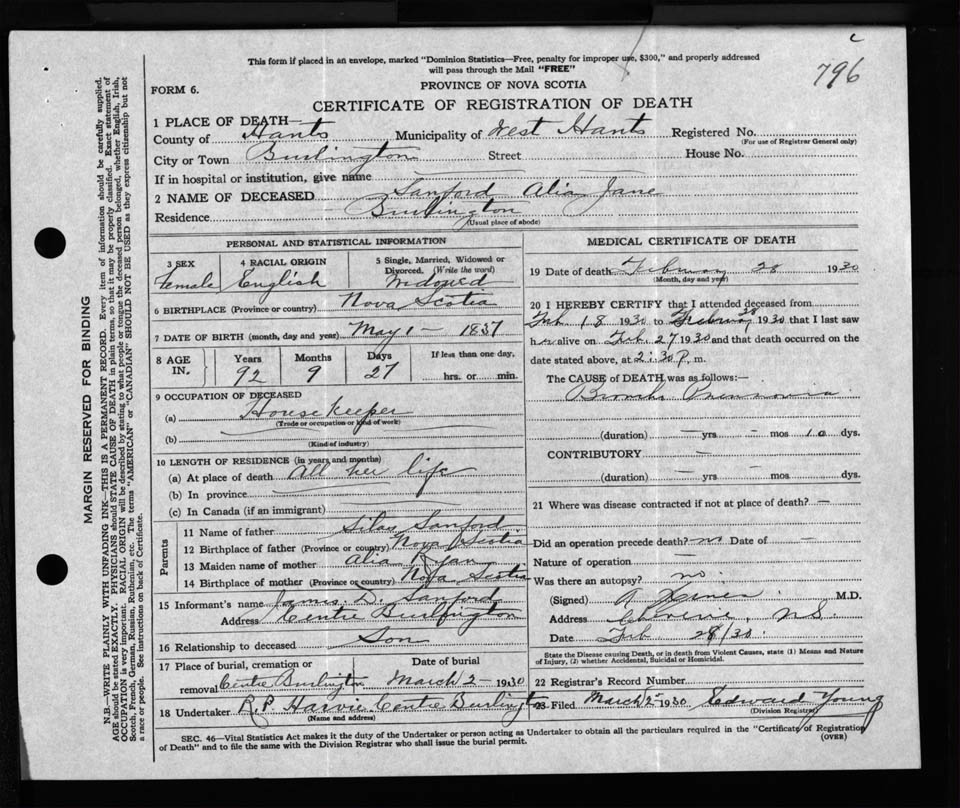 This form if placed in an envelope, marked "Dominion Statistics—Free, penalty for improper use, $300," and properly addressed
will pass through the Mail "FREE"
796
FORM 6.
PROVINCE OF NOVA SCOTIA
CERTIFICATE OF REGISTRATION OF DEATH
1 PLACE OF DEATH—
County of Hants Municipality of West Hants Registered No.
(For use of Registrar General only)
City or Town Burlington Street House No.
If in hospital or institution, give name
2 NAME OF DECEASED Sanford Alia Jane
Residence Burlington
(Usual place of abode)
PERSONAL AND STATISTICAL INFORMATION
3 SEX 4 RACIAL ORIGIN 5 Single, Married, Widowed or
Divorced. (Write the word)
Female English Widowed
6 BIRTHPLACE (Province or country) Nova Scotia
7 DATE OF BIRTH (month, day and year) May 1 — 1837
8 AGE Years Months Days If less than one day,
IN. 92 9 27 hrs. or min.
9 OCCUPATION OF DECEASED
(a) Housekeeper
(Trade or occupation or kind of work)
(b)
(Kind of industry)
10 LENGTH OF RESIDENCE (in years and months)
(a) At place of death All her life
(b) In province
(c) In Canada (if an immigrant)
Parents
11 Name of father Silas Sanford
12 Birthplace of father (Province or country) Nova Scotia
13 Maiden name of mother Alia Ryan
14 Birthplace of mother (Province or country) Nova Scotia
15 Informant's name James D. Sanford
Address Centre Burlington
16 Relationship to deceased Son
17 Place of burial, cremation or Date of burial
removal Centre Burlington March 2 - 1930
18 Undertaker R.P. Harvie Centre Burlington
(Name and address)
MEDICAL CERTIFICATE OF DEATH
19 Date of death February 28 1930
(Month, day and year)
20 I HEREBY CERTIFY that I attended deceased from
Feb 18 1930 to February 28 1930 that I last saw
her alive on Feb 27 1930 and that death occurred on the
date stated above, at 2:30 P. m.
The CAUSE of DEATH was as follows:—
Broncho Pneumonia
(duration) — yrs — mos 10 dys.
CONTRIBUTORY —
(duration) — yrs — mos — dys.
21 Where was disease contracted if not at place of death? —
Did an operation precede death? no Date of —
Nature of operation —
Was there an autopsy? no.
(Signed) M.D.
Address N.S.
Date Feb 28/30.
State the Disease causing Death, or in death from Violent Causes, state (1) Means and Nature
of Injury, (2) whether Accidental, Suicidal or Homicidal.
22 Registrar's Record Number
23 Filed March 2 - 1930 Edward Young
(Division Registrar)
SEC. 46—Vital Statistics Act makes it the duty of the Undertaker or person acting as Undertaker to obtain all the particulars required in the "Certificate of Registration
of Death" and to file the same with the Division Registrar who shall issue the burial permit.
(OVER)
MARGIN RESERVED FOR BINDING
N.B.—WRITE PLAINLY WITH UNFADING INK—THIS IS A PERMANENT RECORD. Every item of information should be carefully supplied.
AGE should be stated EXACTLY. PHYSICIANS should STATE CAUSE OF DEATH in plain terms, so that it may be properly classified. Exact statement of
OCCUPATION is very important. RACIAL ORIGIN will be described by stating to what people or tongue the deceased person belonged, whether English, Irish,
Scotch, French, German, Russian, Ruthenian, etc. The terms "AMERICAN" or "CANADIAN" SHOULD NOT BE USED as they express citizenship but not
a race or people. See instructions on back of Certificate.